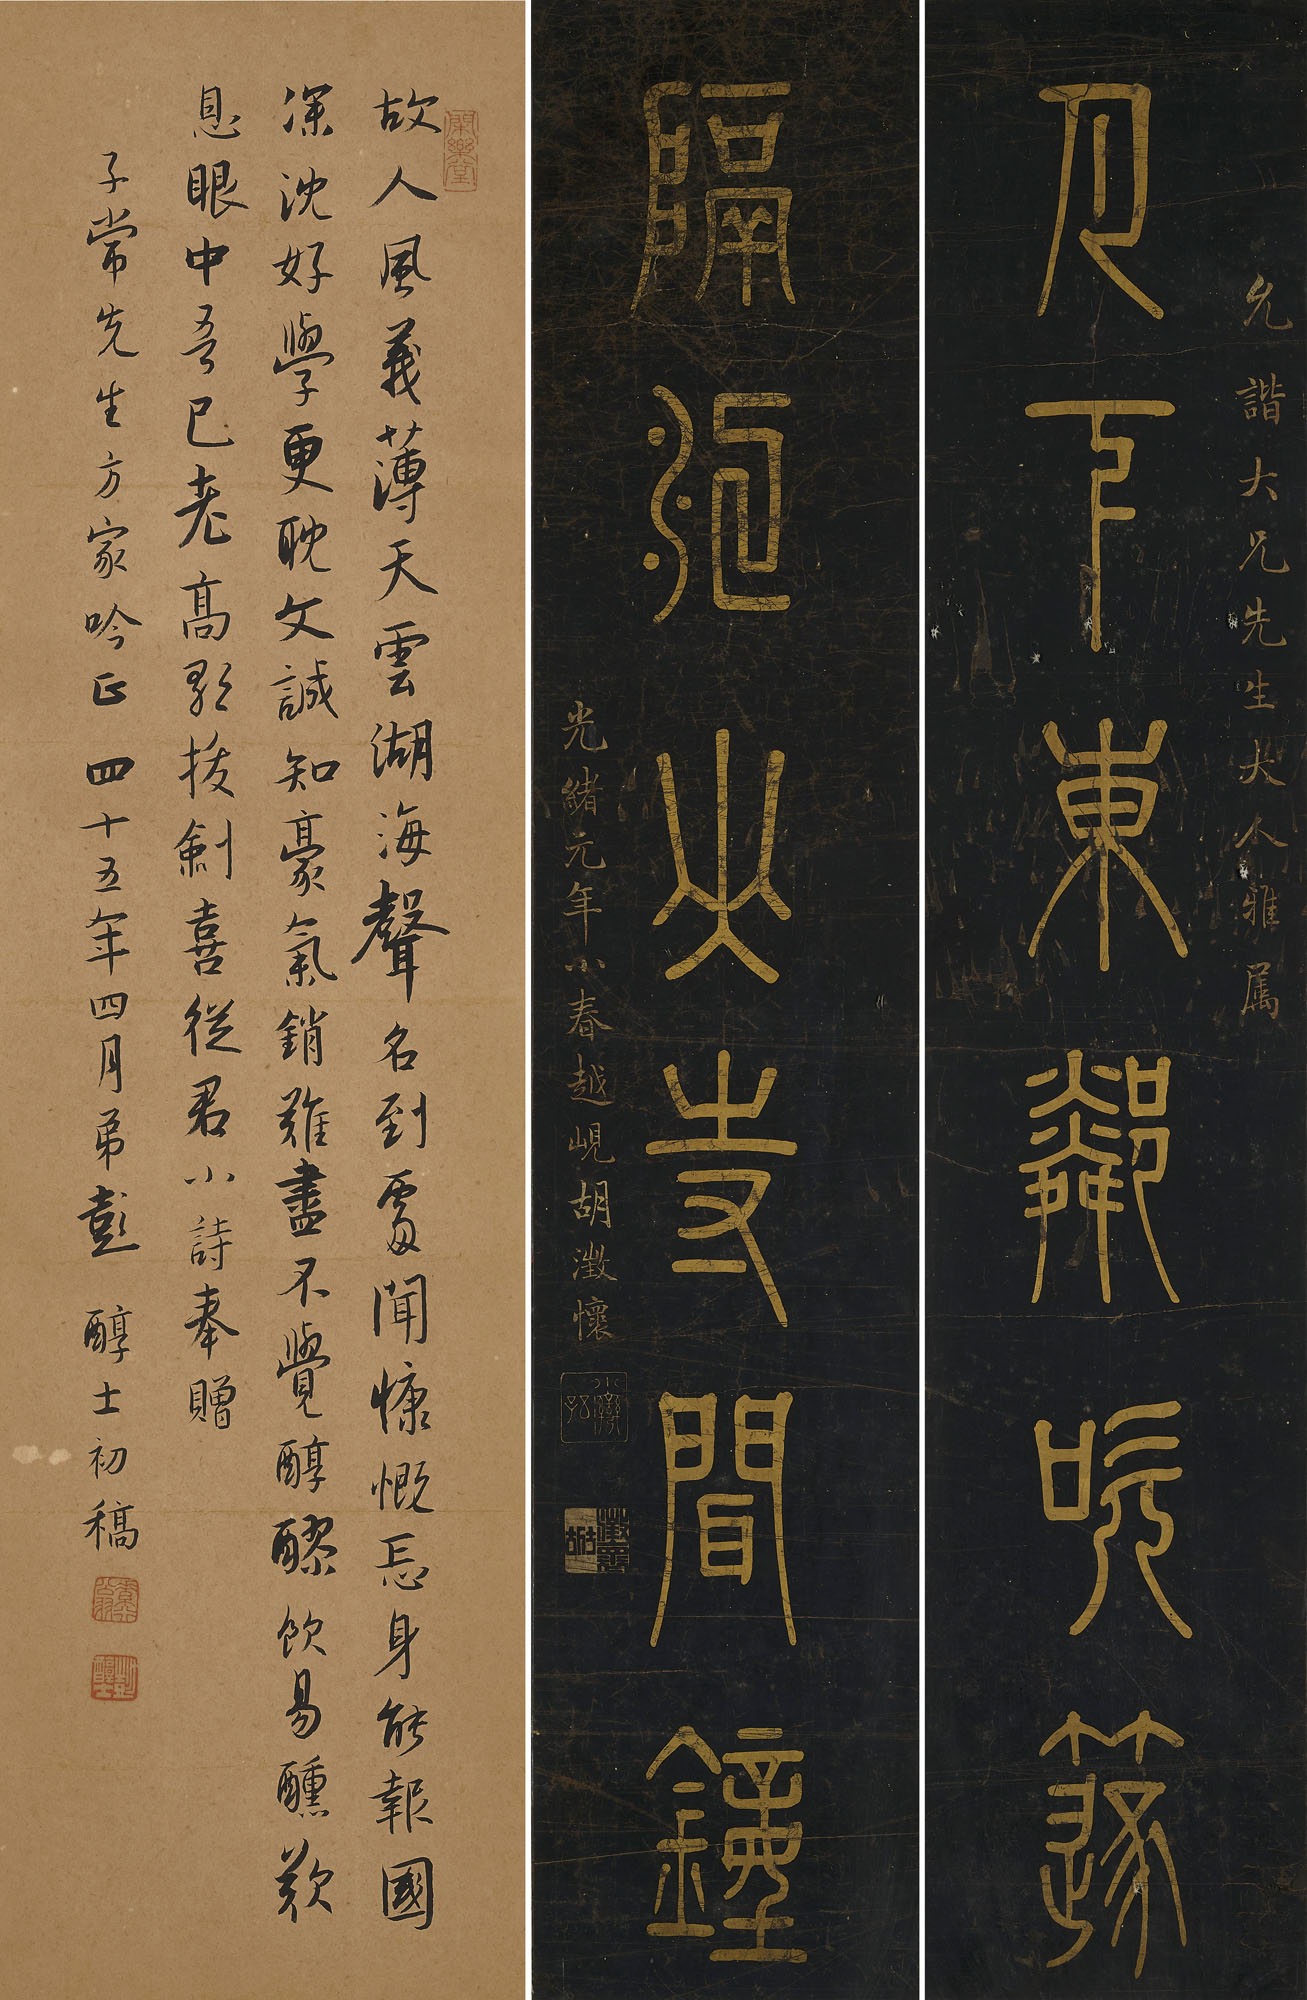 允諧大兄先生大人雅属
月下東鄰吹篴
隔江山寺聞鐘
光緒元年小春越峴胡澂懷
故人風義薄天雲湖海聲名到處聞慷慨忘身能報國
深沈好學更耽文誠知豪氣銷難盡不覺醇醪飲易醺歎
息眼中吾已老高歌拔劍喜從君小詩奉贈
子常先生方家吟正 四十五年四月弟彭醇士初稿